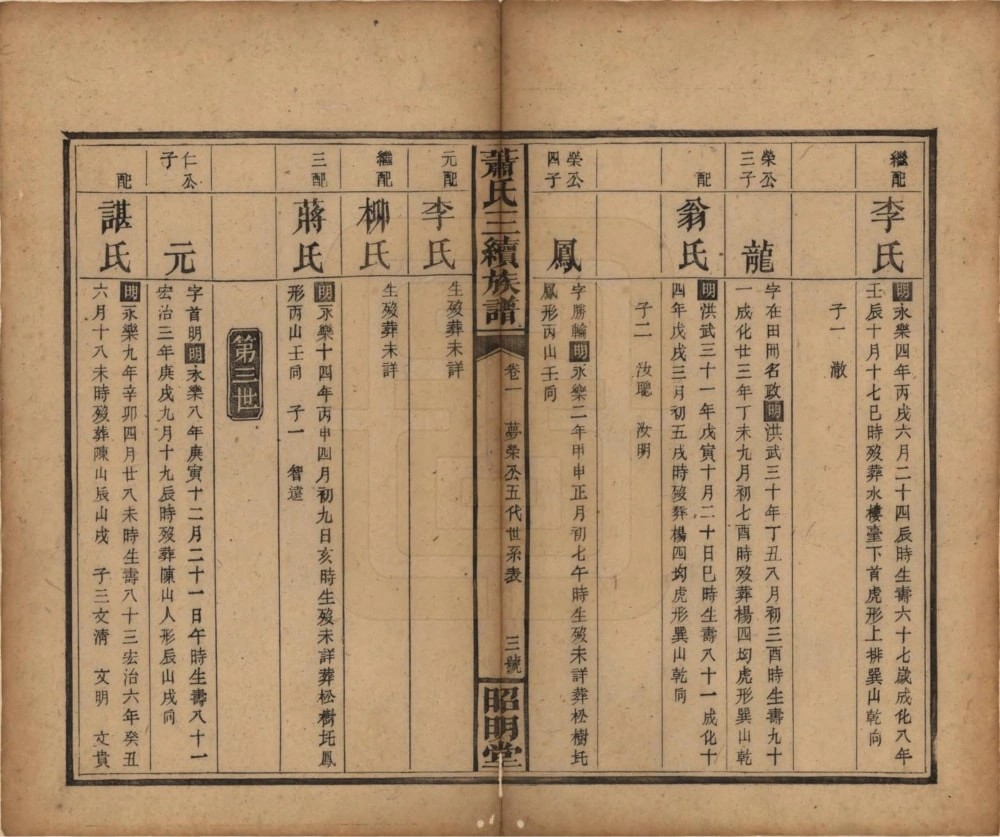 繼配
李氏
明永樂四年丙戌六月二十四辰時生壽六十七歲成化八年
壬辰十月十七巳時殁葬水樓臺下首虎形上排巽山乾向
子一　澈
榮公
三子
龍
字在田冊名政明洪武三十年丁丑八月初三酉時生壽九十
一成化廿三年丁未九月初七酉時殁葬楊四㘭虎形巽山乾
配
翁氏
明洪武三十一年戊寅十月二十日巳時生壽八十一成化十
四年戊戌三月初五戌時殁葬楊四㘭虎形巽山乾向
子二　汝聰　汝明
榮公
四子
鳳
字勝輪明永樂二年甲申正月初七午時生殁未詳葬松樹坵
鳳形丙山壬向
蕭氏三續族譜
卷一
夢榮公五代世系表
三號
昭明堂
元配
李氏
生殁葬未詳
繼配
柳氏
生殁葬未詳
三配
蔣氏
明永樂十四年丙申四月初九日亥時生殁未詳葬松樹坵鳳
形丙山壬向　子一　智遠
第三世
仁公
子
元
字首明明永樂八年庚寅十二月二十一日午時生壽八十一
宏治三年庚戌九月十九辰時殁葬陳山人形辰山戌向
配
諶氏
明永樂九年辛卯四月廿八未時生壽八十三宏治六年癸丑
六月十八未時殁葬陳山辰山戌　子三文清　文明　文貴